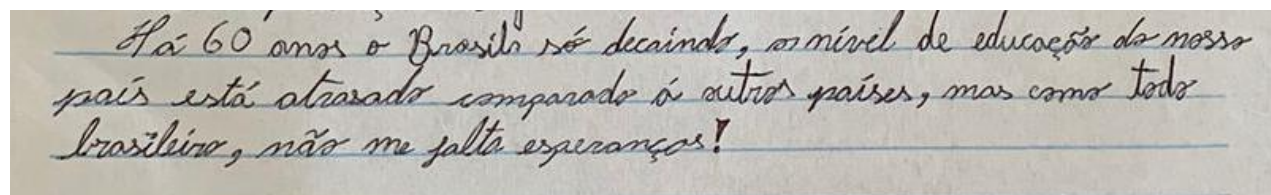 Há 60 anos o Brasil só decaindo, o nível de educação do nosso
país está atrasado comparado á outros países, mas como todo
brasileiro, não me falta esperanças!